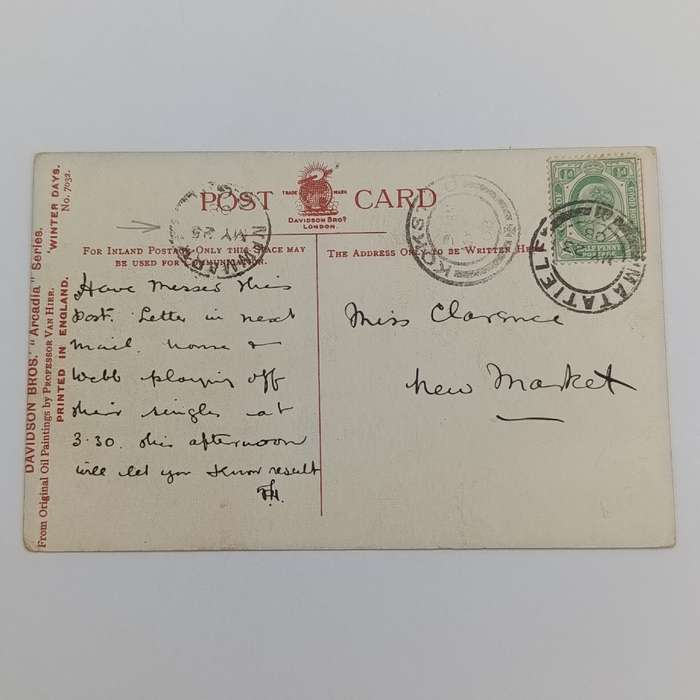 POST CARD
TRADE MARK
DAVIDSON BROS.
LONDON.
FOR INLAND POSTAGE ONLY THIS SPACE MAY
BE USED FOR COMMUNICATION.
THE ADDRESS ONLY TO BE WRITTEN HERE
DAVIDSON BROS. "Arcadia" Series.
From Original Oil Paintings by PROFESSOR VAN HIER.
'WINTER DAYS.
No. 7032.
PRINTED IN ENGLAND.
Have messed this
post. Letter in next
mail. &
Webb playing off
their singles at
3.30. this afternoon
will let you know result
Miss Clarence
New Market
NEWMARK
MY 25
KOKS
MATATIELE
½d ½d
HALF PENNY